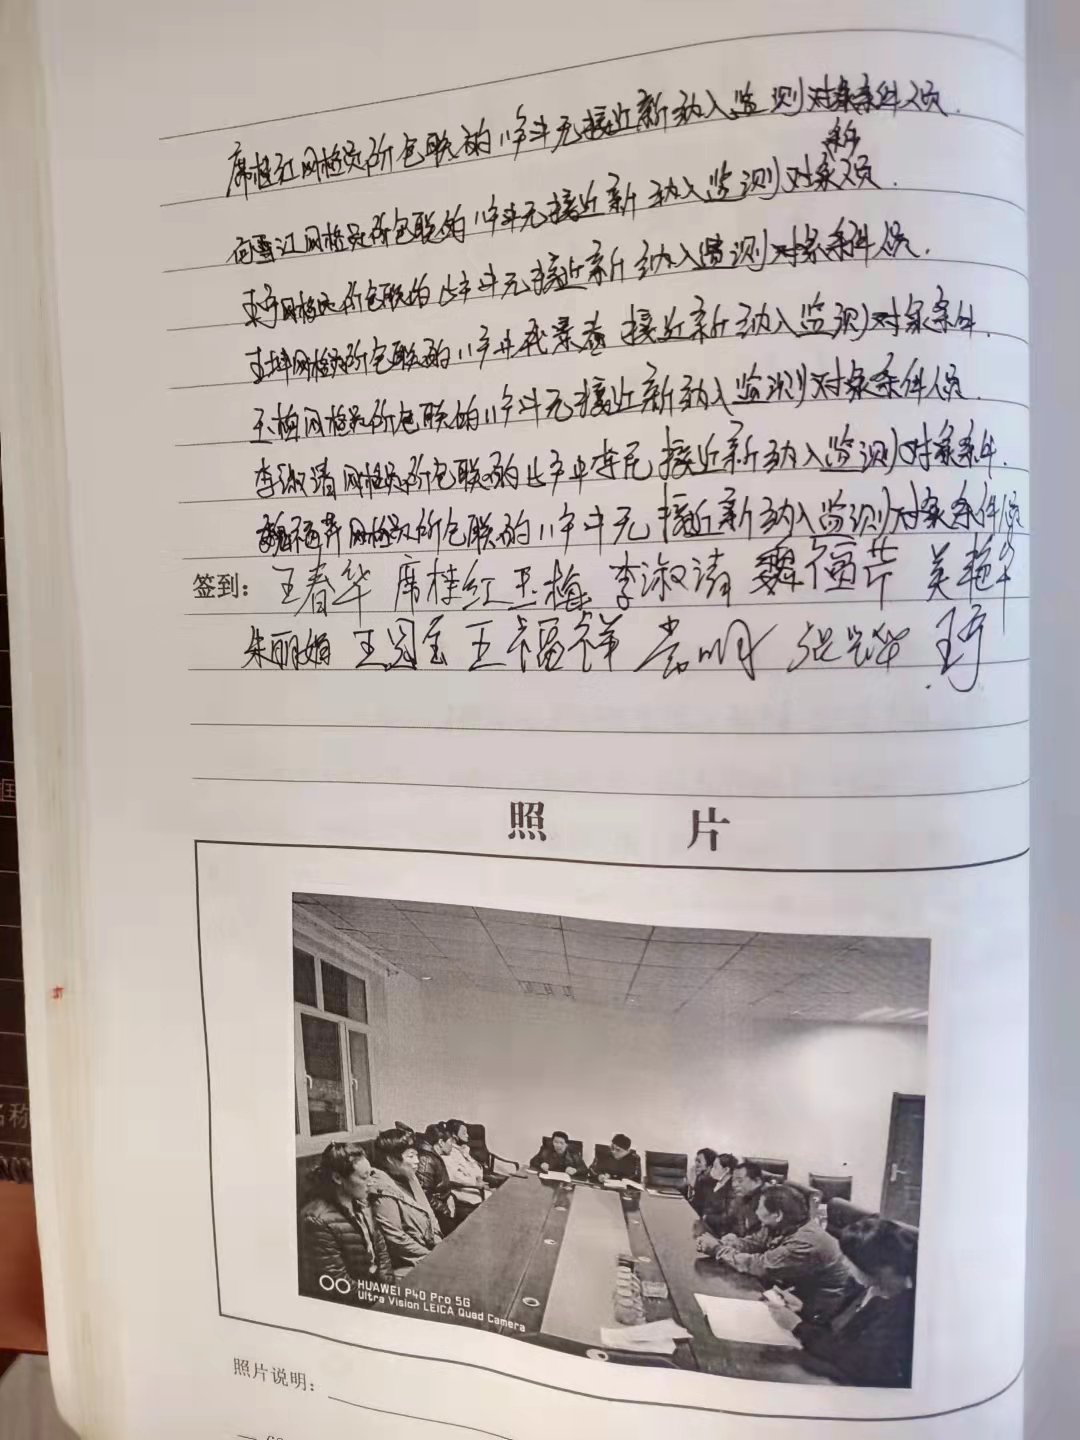 席桂红网格员所包联的11户中无接近新纳入监测对象条件人员.
条件
网格员所包联的11户中无接近新纳入监测对象人员.
王宁网格员所包联的 户中无接近新纳入监测对象条件人员.
网格员所包联的11户中 接近新纳入监测对象条件.
王梅网格员所包联的11户中无接近新纳入监测对象条件人员.
李淑清网格员所包联的 户中 接近新纳入监测对象条件.
魏福芹网格员所包联的11户中无接近新纳入监测对象条件人员
签到: 王春华 席桂红 王梅 李淑清 魏福芹 吴艳华
朱丽娟 王福祥 王宁
照 片
HUAWEI P40 Pro 5G
Ultra Vision LEICA Quad Camera
照片说明:
名称